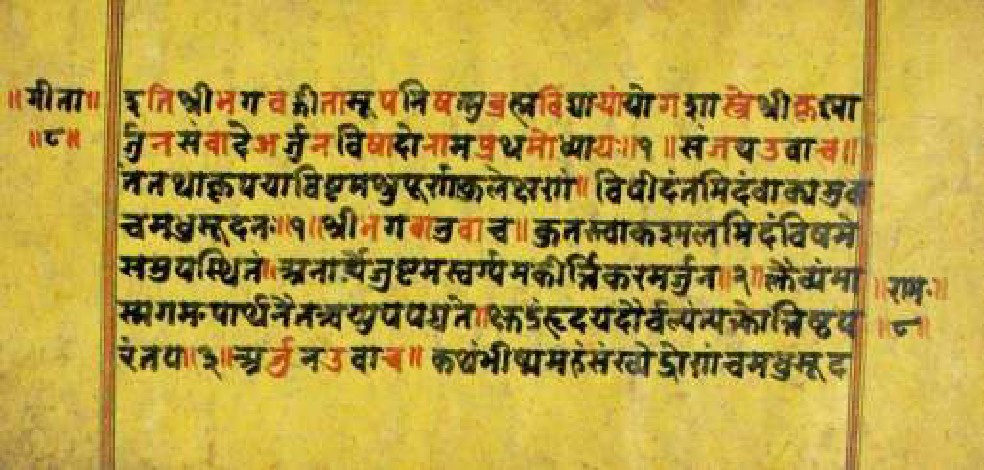 ॥गीता॥
॥८॥
इति श्रीभगवद्गीतासूपनिषत्सुब्रह्मविद्यायांयोगशास्त्रेश्रीकृष्णा
र्जुनसंवादेअर्जुनविषादोनामप्रथमोध्यायः॥१॥संजयउवाच॥
तंतथाकृपयाविष्टमश्रुपूर्णाकुलेक्षणं॥विषीदंतमिदंवाक्यमुवा
चमधुसूदनः॥१॥श्रीभगवानुवाच॥कुतस्त्वाकश्मलमिदंविषमे
समुपस्थितं॥अनार्यजुष्टमस्वर्ग्यमकीर्त्तिकरमर्जुन॥२॥क्लैव्यंमा
स्मगमःपार्थनैतत्त्वय्युपपद्यते॥क्षुद्रंहृदयदौर्वल्यंत्यक्त्वोत्तिष्ठप
रंतप॥३॥अर्जुनउवाच॥कथंभीष्ममहंसंख्येद्रोणंचमधुसूद
॥रामः॥
॥८॥